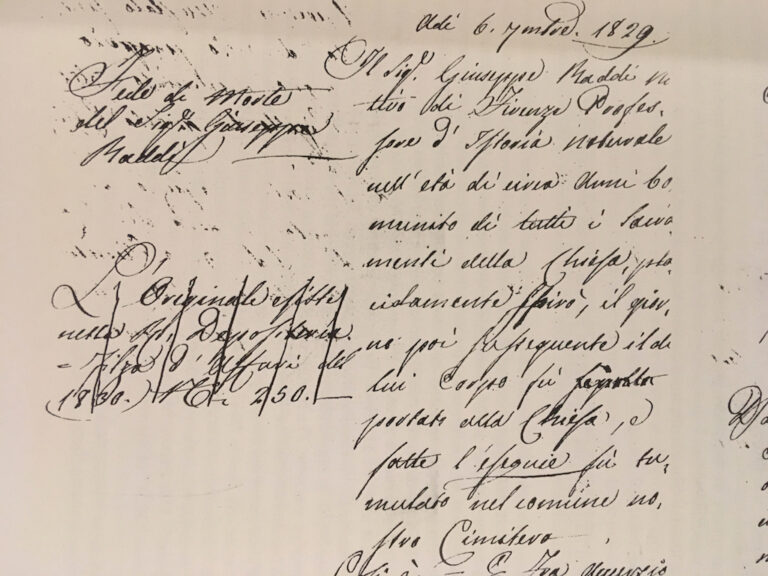 Adì 6. 7mbre. 1829.
Fede di Morte
del Sigr. Giuseppe
Raddi
Il Sigr. Giuseppe Raddi na
tivo di Firenze Profes=
sore d' Istoria naturale
nell' età di circa anni 60
munito di tutti i Sacra
menti della Chiesa, pla
cidamente spirò, il gior,
no poi susseguente il di
lui Corpo fù
portato alla Chiesa, e
fatte l'esequie fù tu,
mulato nel comune no,
stro Cimitero
L' Originale esiste
nella Depositeria
= Filza d' Affari del
1830.) N. 250.